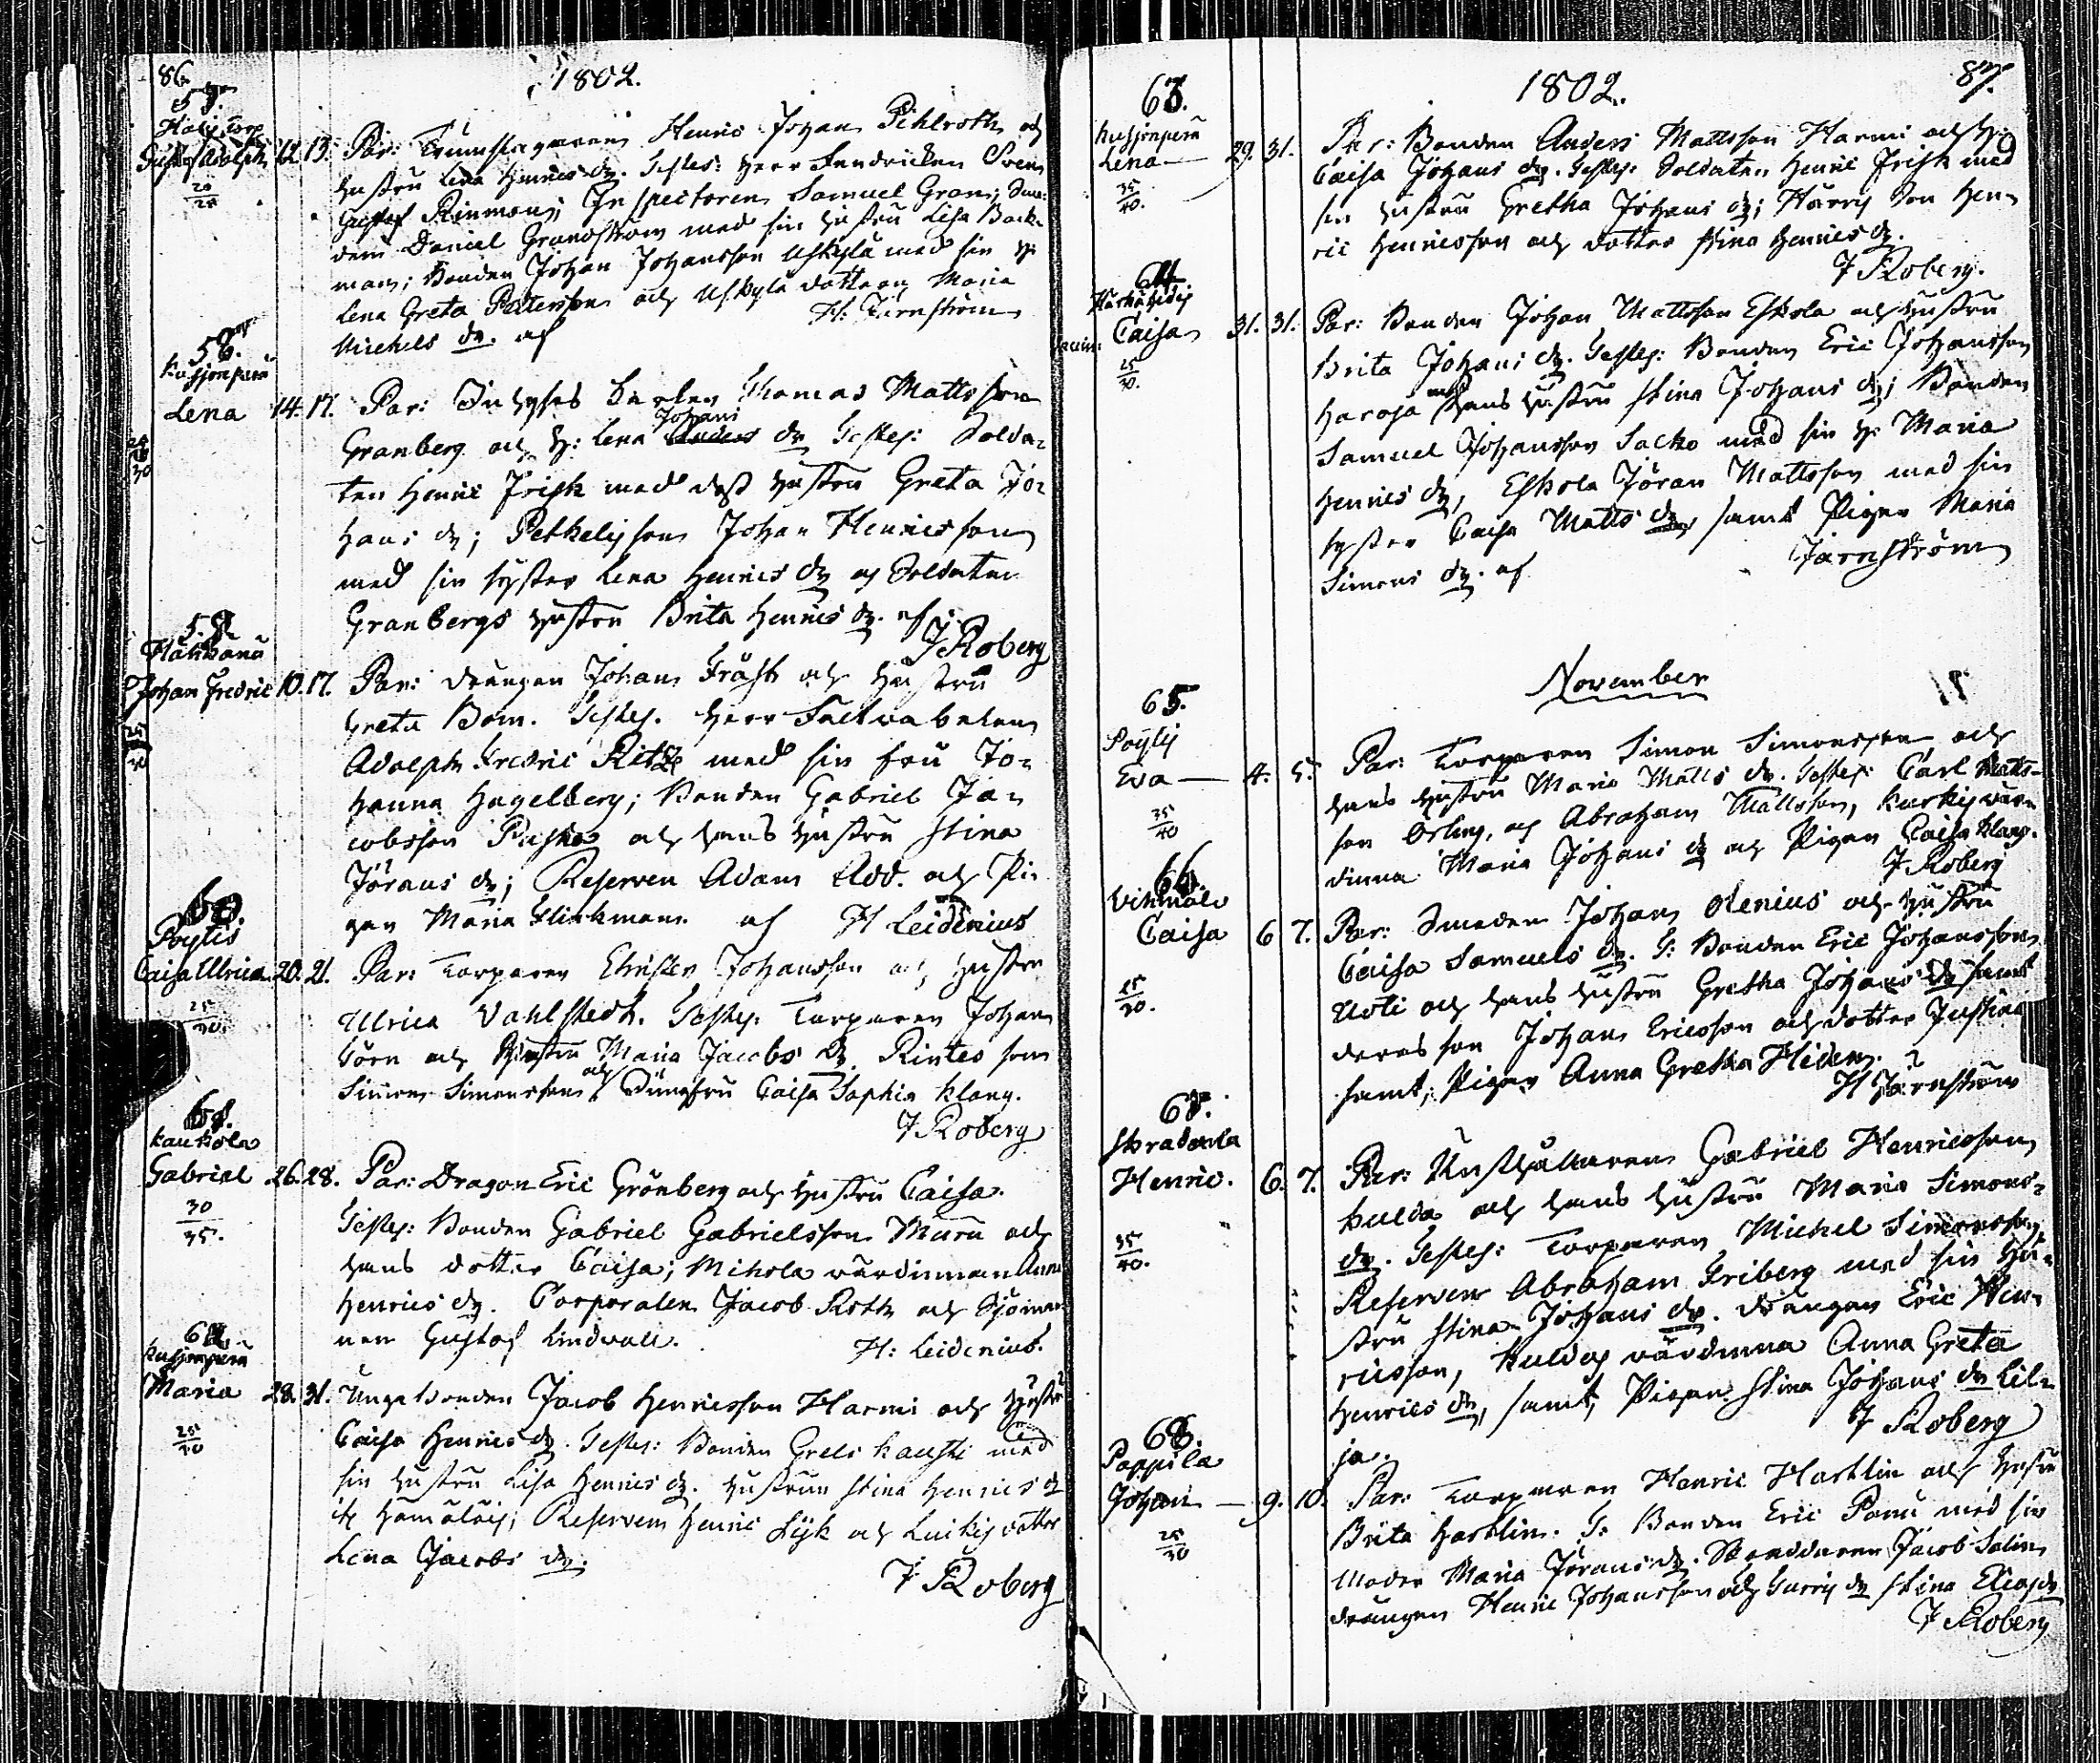 86.
1802.
57.
Gustaf Adolph 12. 13. Par: Trumslagaren Henric Johan Pihlroth och
20
25
hustru Lena Henrics dr. Testes: Herr Fendricken Sven
Gustaf Rinman; Inspectoren Samuel Gran; Sme-
den Daniel Grandström med sin hustru Lisa Back-
man; Bonden Johan Johansson Uskyla med sin h:
Lena Greta Petersson och Uskyla dottren Maria
Michels dr. af H. Järnström
58.
Kusjonperä
Lena 14. 17. Par: Inhyses Karlen Thomas Mattsson
Johans
Granberg och h: Lena Anders dr Testes: Solda-
ten Henric Frisk med dess hustru Greta Jo-
30
hans dr; Pethelis son Johan Henricsson
med sin syster Lena Henrics dr och Soldaten
Granbergs hustru Brita Henrics dr. af
J Roberg
Johan Fredric 10. 17. Par: drängen Johan Fråst och hustru
Greta Bom. Testes. Herr
25
30
Adolph Fredric Ritz med sin fru Jo-
hanna Hagelberg; Bonden Gabriel Ja-
cobsson och hans hustru Stina
Jörans dr; Reserven Adam och Pi-
gan Maria Flinkman. af H Leidenius
60.
Poytis
Caisa Ulrica 20. 21. Par: Torparen Christer Johansson och hustru
25
30.
Ulrica Vahlstedt. Testes: Torparen Johan
och hustru Maria Jacobs dr. Rintes son
och
Simon Simonsson Jungfru Caisa Sophia Klang.
J Roberg
61.
Kaukola
Gabriel 26. 28. Par: Dragon Eric Grönberg och hustru Caisa.
30
35.
Testes: Bonden Gabriel Gabrielsson Muru och
hans dotter Caisa; Mihola värdinnan Anna
Henrics dr. Corporalen Jacob Roth och Sjöman-
nen Gustaf Lindvall. H: Leidenius.
62.
Kusjonperä
Maria 28. 31. Unga bonden Jacob Henricsson Harmi och hustru
25
30
Caisa Henrics dr. Testes: Bonden Grels Kauthi med
sin hustru Lisa Henrics dr. hustrun Stina Henrics dr
Reserven Henric och dotter
Lena Jacobs dr.
J Roberg
1802. 87.
63.
Kusjonperä
Lena 29. 31. Par: Bonden Anders Mattsson Harmi och h:
35
40.
Caisa Johans dr. Testes: Soldaten Henric Frisk med
sin hustru Gretha Johans dr; Harris Son Hen-
ric Henricsson och dotter Stina Henrics dr.
J Roberg.
64.
Caisa 31. 31. Par: Bonden Johan Mattsson Eskola och hustru
25
30.
Brita Johans dr. Testes: Bonden Eric Johansson
Haroja med hans hustru Stina Johans dr; Bonden
Samuel Johansson Sacko med sin h: Maria
Henrics dr, Eskola Jöran Mattsson med sin
syster Caisa Matts dr, samt Pigan Maria
Simons dr. af Järnström
November
65.
Eva 4. 5. Par: Torparen Simon Simonsson och
35
40
hans hustru Maria Matts dr. Testes: Carl Matts-
son Orling, och Abraham Mattsson, Karkis vär-
dinna Maria Johans dr och Pigan Caisa Klang.
J Roberg
66.
Caisa 6 7. Par: Smeden Johan Olenius och hustru
25
30.
Caisa Samuels dr. T: Bonden Eric Johansson
Uoti och hans hustru Gretha Johans dr samt
deras son Johan Ericsson och dotter Justina
samt, Pigan Anna Gretha Hiden.
H Järnström
67.
Henric. 6. 7. Par: Rusthållaren Gabriel Henricsson
35
40.
Kulda och hans hustru Maria Simons-
dr. Testes: Torparen Michel Simonsson,
Reserven Abraham Friberg med sin hu-
stru Stina Johans dr. drängen Eric Hen-
ricsson, Kuldas värdinna Anna Greta
Henrics dr, samt, Pigan Stina Johans dr Lil-
ja.
J Roberg
68.
Pappila
Johan 9. 10. Par: Torparen Henric Harthlin och hustru
25
30
Brita Harthlin. T: Bonden Eric Panu med sin
Moder Maria Jörans dr. Skräddaren Jacob Salin
drängen Henric Johansson och dr Stina Elias dr
J Roberg